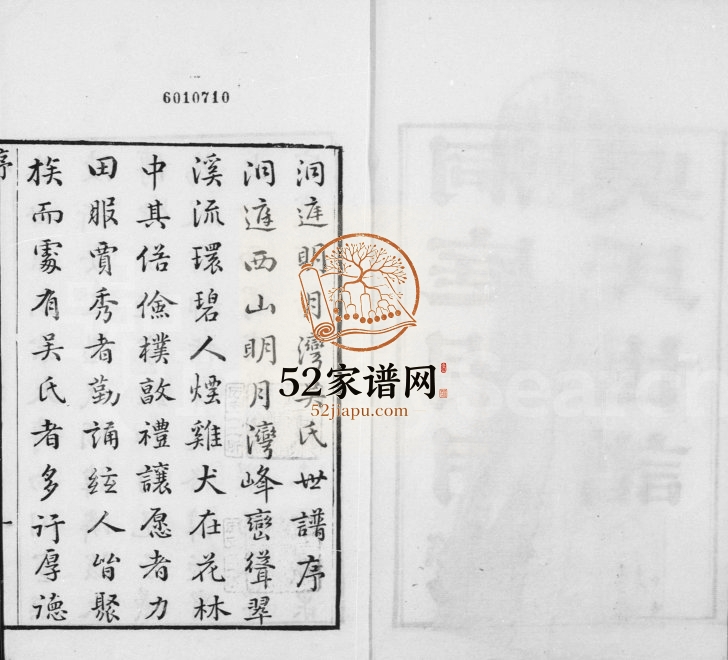 6010710
洞庭明月灣吳氏世譜序
洞庭西山明月灣峰巒聳翠
溪流環碧人煙雞犬在花林
中其俗儉樸敦禮讓愿者力
田服賈秀者勤誦絃人皆聚
族而處有吴氏者多行厚德
序
一
52家谱网
52jiapu.com